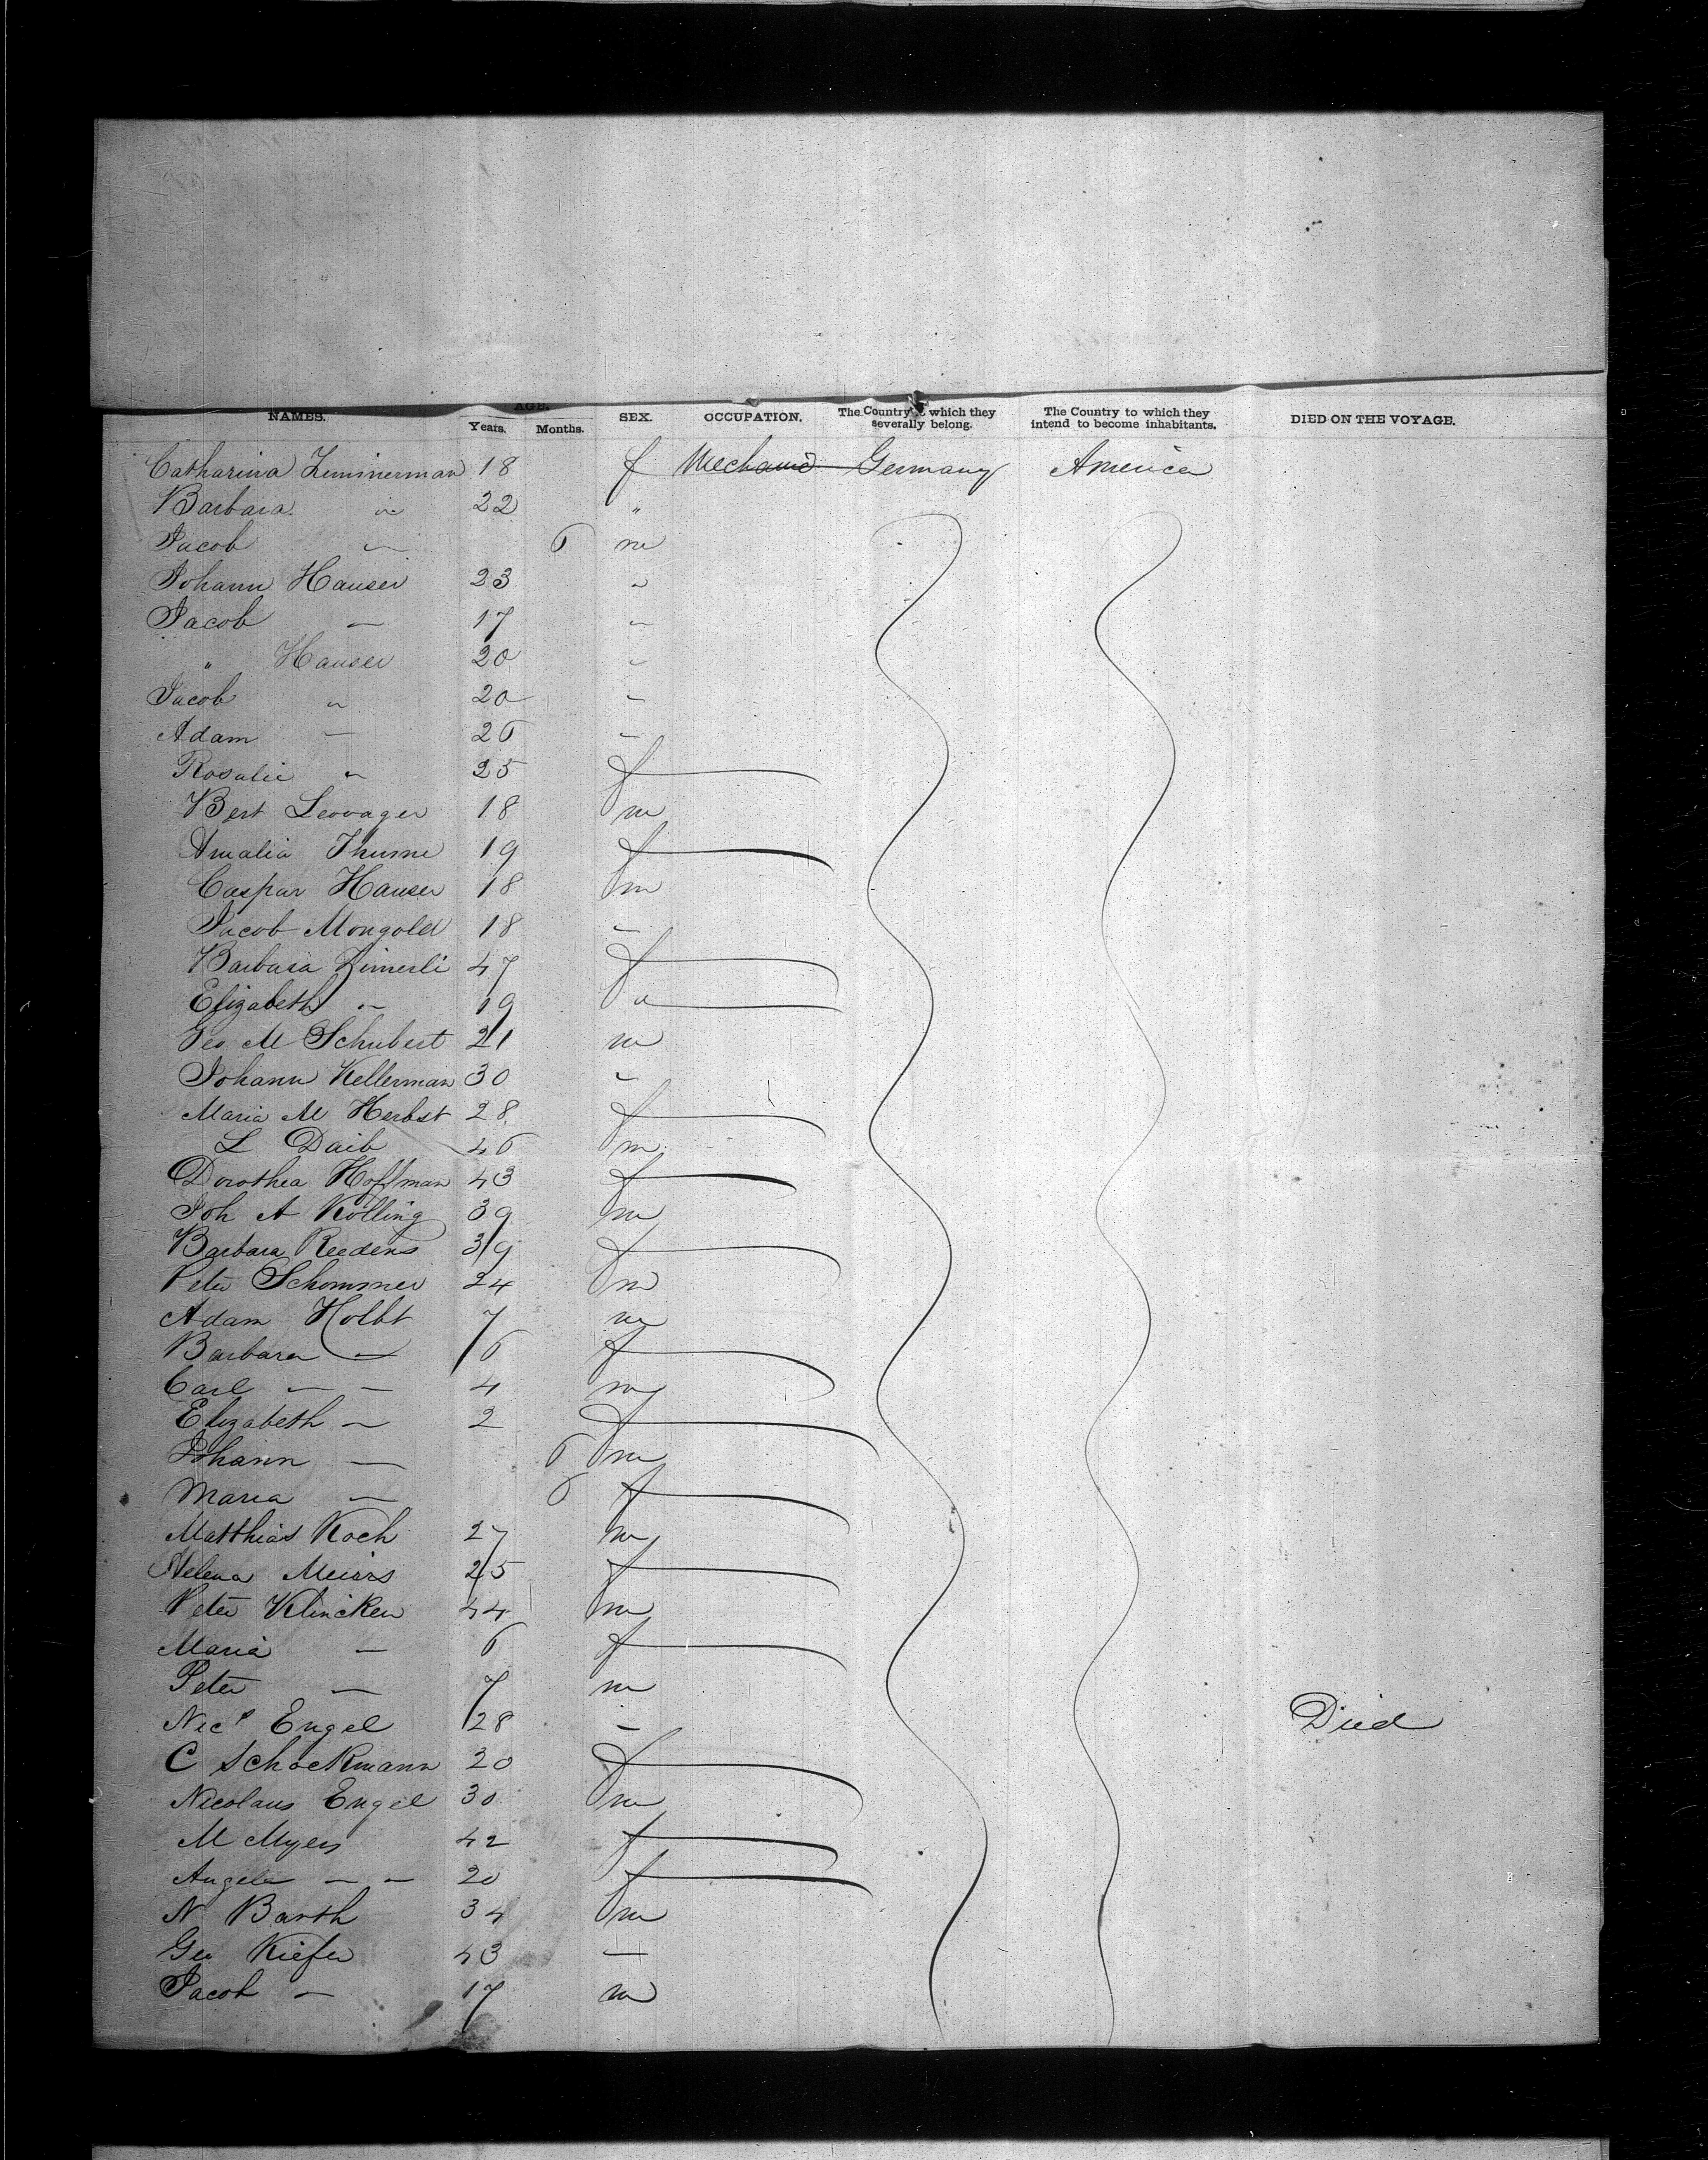 NAMES. AGE. Years. Months. SEX. OCCUPATION. The Country to which they severally belong. The Country to which they intend to become inhabitants. DIED ON THE VOYAGE.
Catharina Zimmerman 18 f Mechanic Germany America
Barbara " 22 "
Jacob " 6 m
Johann Hauser 23 "
Jacob — 17 "
" Hauser 20 "
Jacob " 20 "
Adam — 26 "
Rosalie " 25 f
Bert 18 m
Amalia Thume 19 f
Caspar Hauser 18 m
Jacob Mongold 18 "
Barbara Zimerli 47 f
Elizabeth " 19 "
Geo M Schubert 21 m
Johann Kellerman 30 "
Maria M Herbst 28 f
L Daib 46 m
Dorothea Hoffman 43 f
Joh A Kolling 39 m
Barbara Reedens 39 f
Peter Schommer 24 m
Adam Holbt 7 m
Barbara — 6 f
Carl — — 4 m
Elizabeth — 2 f
Johann — 6 m
Maria — 6 f
Matthias Koch 27 m
Helena 25 f
Peter Klincken 44 m
Maria — 6 f
Peter — 7 m
Nics Engel 28 — Died
C Schockmann 20 f
Nicolaus Engel 30 m
M Myers 42 f
Angela — — 20 f
N Barth 34 m
Geo Kiefer 43 —
Jacob — 17 m